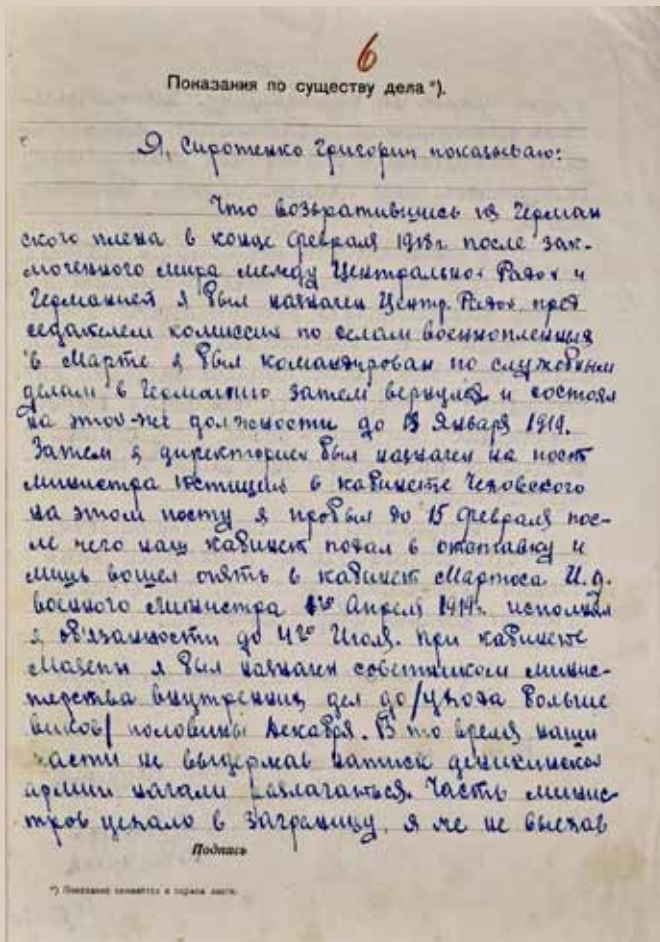 6
Показания по существу дела *).
Я, Сиротенко Григорий показываю:
Что возвратившись из Герман
ского плена в конце февраля 1918 г. после зак-
люченного мира между Центральной Радой и
Германией я был назначен Центр. Радой пред
седателем комиссии по делам военнопленных
в Марте я был командирован по служебным
делам в Германию затем вернулся и состоял
на этой-же должности до 13 Января 1919.
Затем я директорией был назначен на пост
министра юстиции в кабинете Чеховского
на этом посту я пробыл до 15 февраля пос-
ле чего наш кабинет подал в отставку и
лишь вошел опять в кабинет Мартоса И.д.
военного министра Апреля 1919 г. исполнял
я об'язанности до 4го Июля. при кабинете
Мазепы я был назначен советником минис-
терства внутренних дел до /ухода больше
виков/ половины декабря. В то время наши
части не выдержав натиск деникинской
армии начали разлагаться. Часть минис-
тров уехало в заграницу, я же не выехав
Подпись
*) Показания